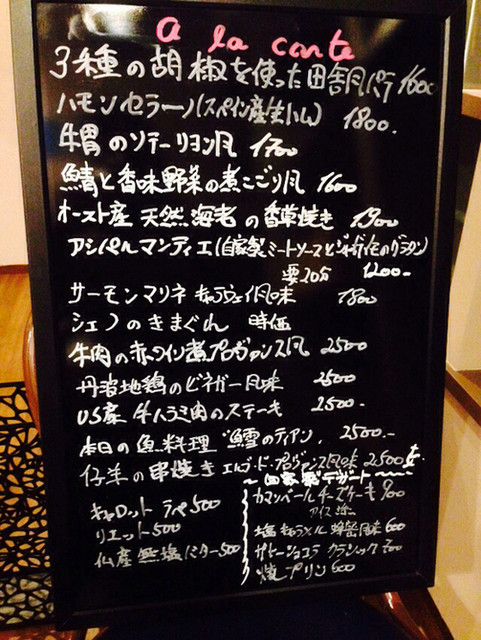 a la carte
3種の胡椒を使った田舎風パテ 1600
ハモンセラーノ(スペイン産生ハム) 1800.
牛胃のソテーリヨン風 1700
鯖と香味野菜の煮こごり風 1600
オースト産 天然海老の香草焼き 1900
アシパルマンティエ(自家製ミートソースとジャガイモのグラタン)
要20分 1200-
サーモンマリネ キャラウェイ風味 1800
シェフのきまぐれ 時価
牛肉の赤ワイン煮プロヴァンス風 2500
丹波地鶏のビネガー風味 2500
US産 牛ハラミ肉のステーキ 2500-
本日の魚料理 "鱈のティアン, 2500-
仔羊の串焼き エルブ・ド・プロヴァンス風味 2500
キャロットラペ 500
リエット 500
仏産無塩バター 500
~自家製デザート~
カマンベールチーズケーキ 900
アイス添
塩キャラメル 蜂蜜風味 600
ガトーショコラ クラシック 700
焼プリン 600